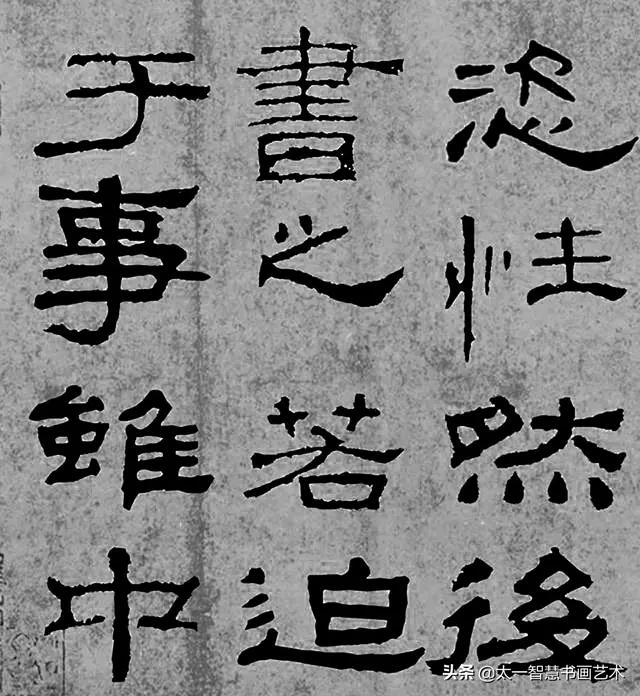 恣性然後
書之若迫
于事雖中
头条 @太一智慧书画艺术